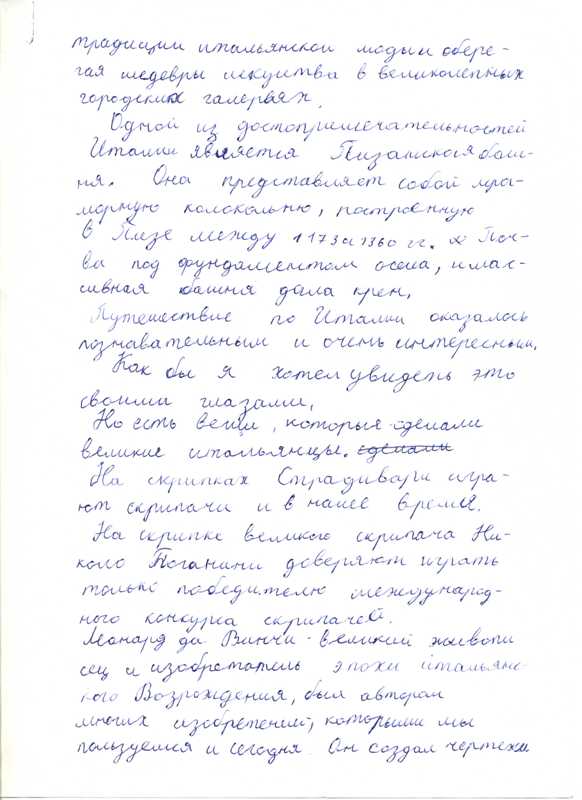 традиции итальянской моды обере-
гая шедевры искуства в великолепных
городских галереях.
Одной из достопримечательностей
Италии является Пизанская баш-
ня. Она представляет собой мра-
морную колокольню, построенную
в Пизе между 1173 и 1360 гг. Поч-
ва под фундаментом осела, и мас-
сивная башня дала крен.
Путешествие по Италии оказалось
познавательным и очень интересным.
Как бы я хотел увидеть это
своими глазами.
Но есть вещи, которые сделали
великие итальянцы. сделали
На скрипках Страдивари игра-
ют скрипачи и в наше время.
На скрипке великого скрипача Ни-
коло Поганини доверяют играть
только победителю международ-
ного конкурса скрипачей.
Леонард да Винчи - великий живопи
сец и изобретатель эпохи итальянс-
кого Возрождения, был автором
многих изобретений, которыми мы
пользуемся и сегодня. Он создал чертежи